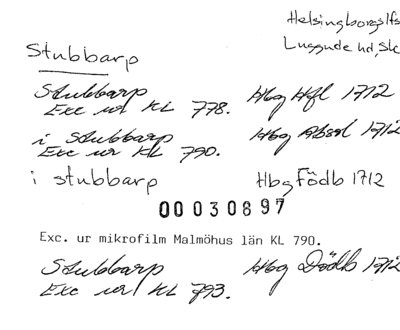 Helsingborgs lfs
Luggude hd, Sk
Stubbarp
Stubbarp Hbg Hfl 1712
Exc ur KL 778.
i Stubbarp Hbg Absol 1712
Exc ur KL 790.
i stubbarp Hbg Födb 1712
0003 0897
Exc. ur mikrofilm Malmöhus län KL 790.
Stubbarp Hbg Dödb 1712
Exc ur KL 793.